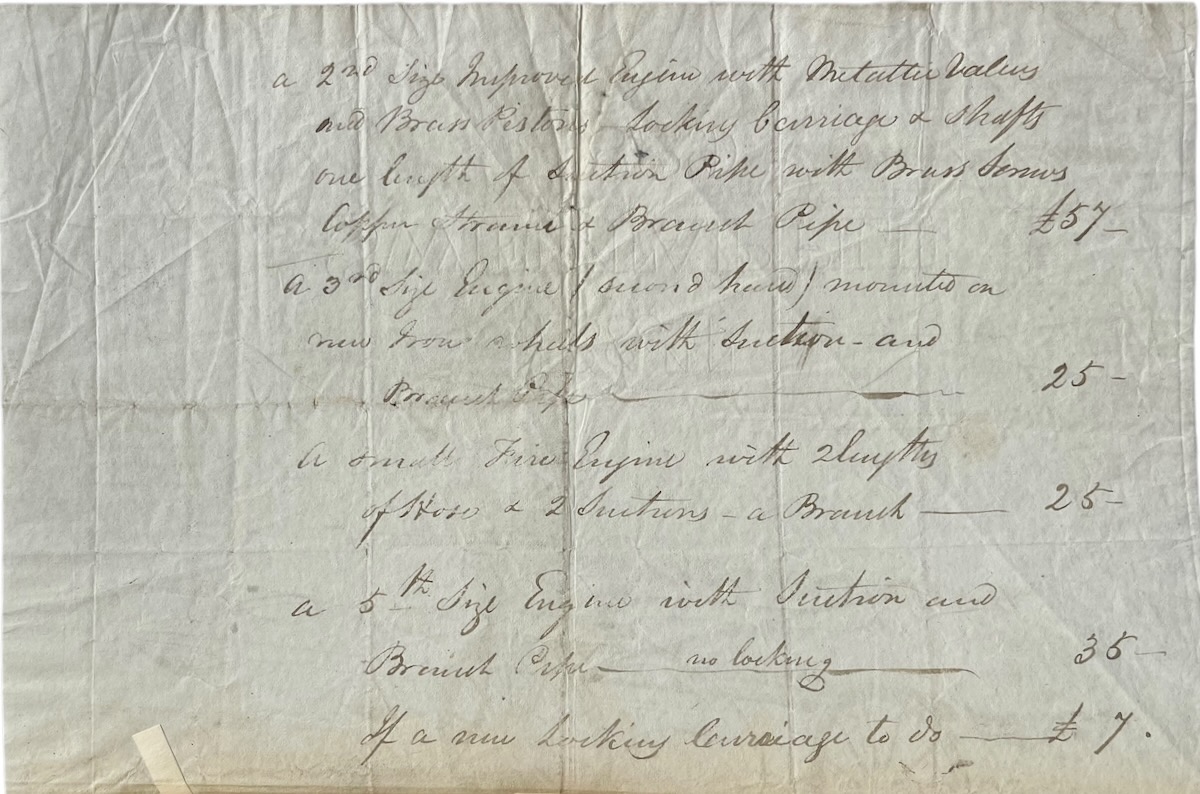 a 2nd Size Improved Engine with Metallic Valves
and Brass Pistons Locking Carriage & Shafts
one length of Suction Pipe with Brass Screws
Copper Strainer & Branch Pipe — £57-
A 3rd Size Engine (second hand) mounted on
new Iron wheels with Suction - and
Branch Pipe — 25-
A small Fire Engine with 2 lengths
of Hose & 2 Suctions - a Branch — 25-
a 5th Size Engine with Suction and
Branch Pipe — no locking — 35-
If a new Locking Carriage to do — £7.